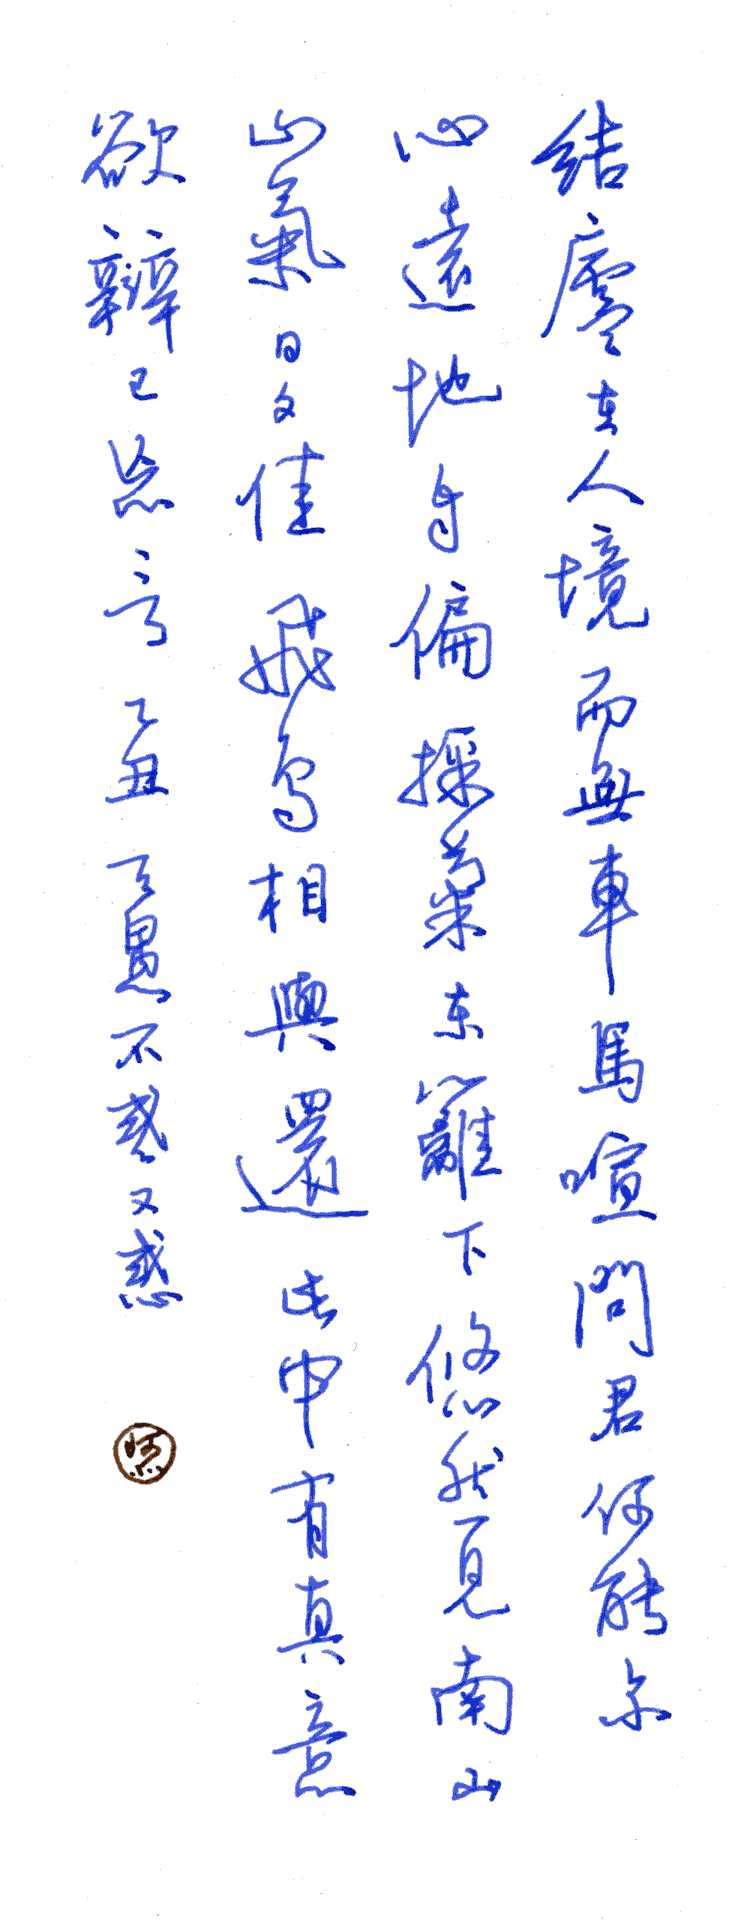 结廬在人境而無車馬喧問君何能尔
心遠地自偏採菊东籬下悠然見南山
山氣日夕佳飛鳥相與還此中有真意
欲辯已忘言 乙丑 天愚不惑又惑